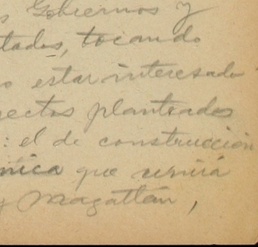 Gobiernos y
tados, tocando
o estar interesado
ectos planteados
: el de construcción
nica que unirá
y Magatlán,